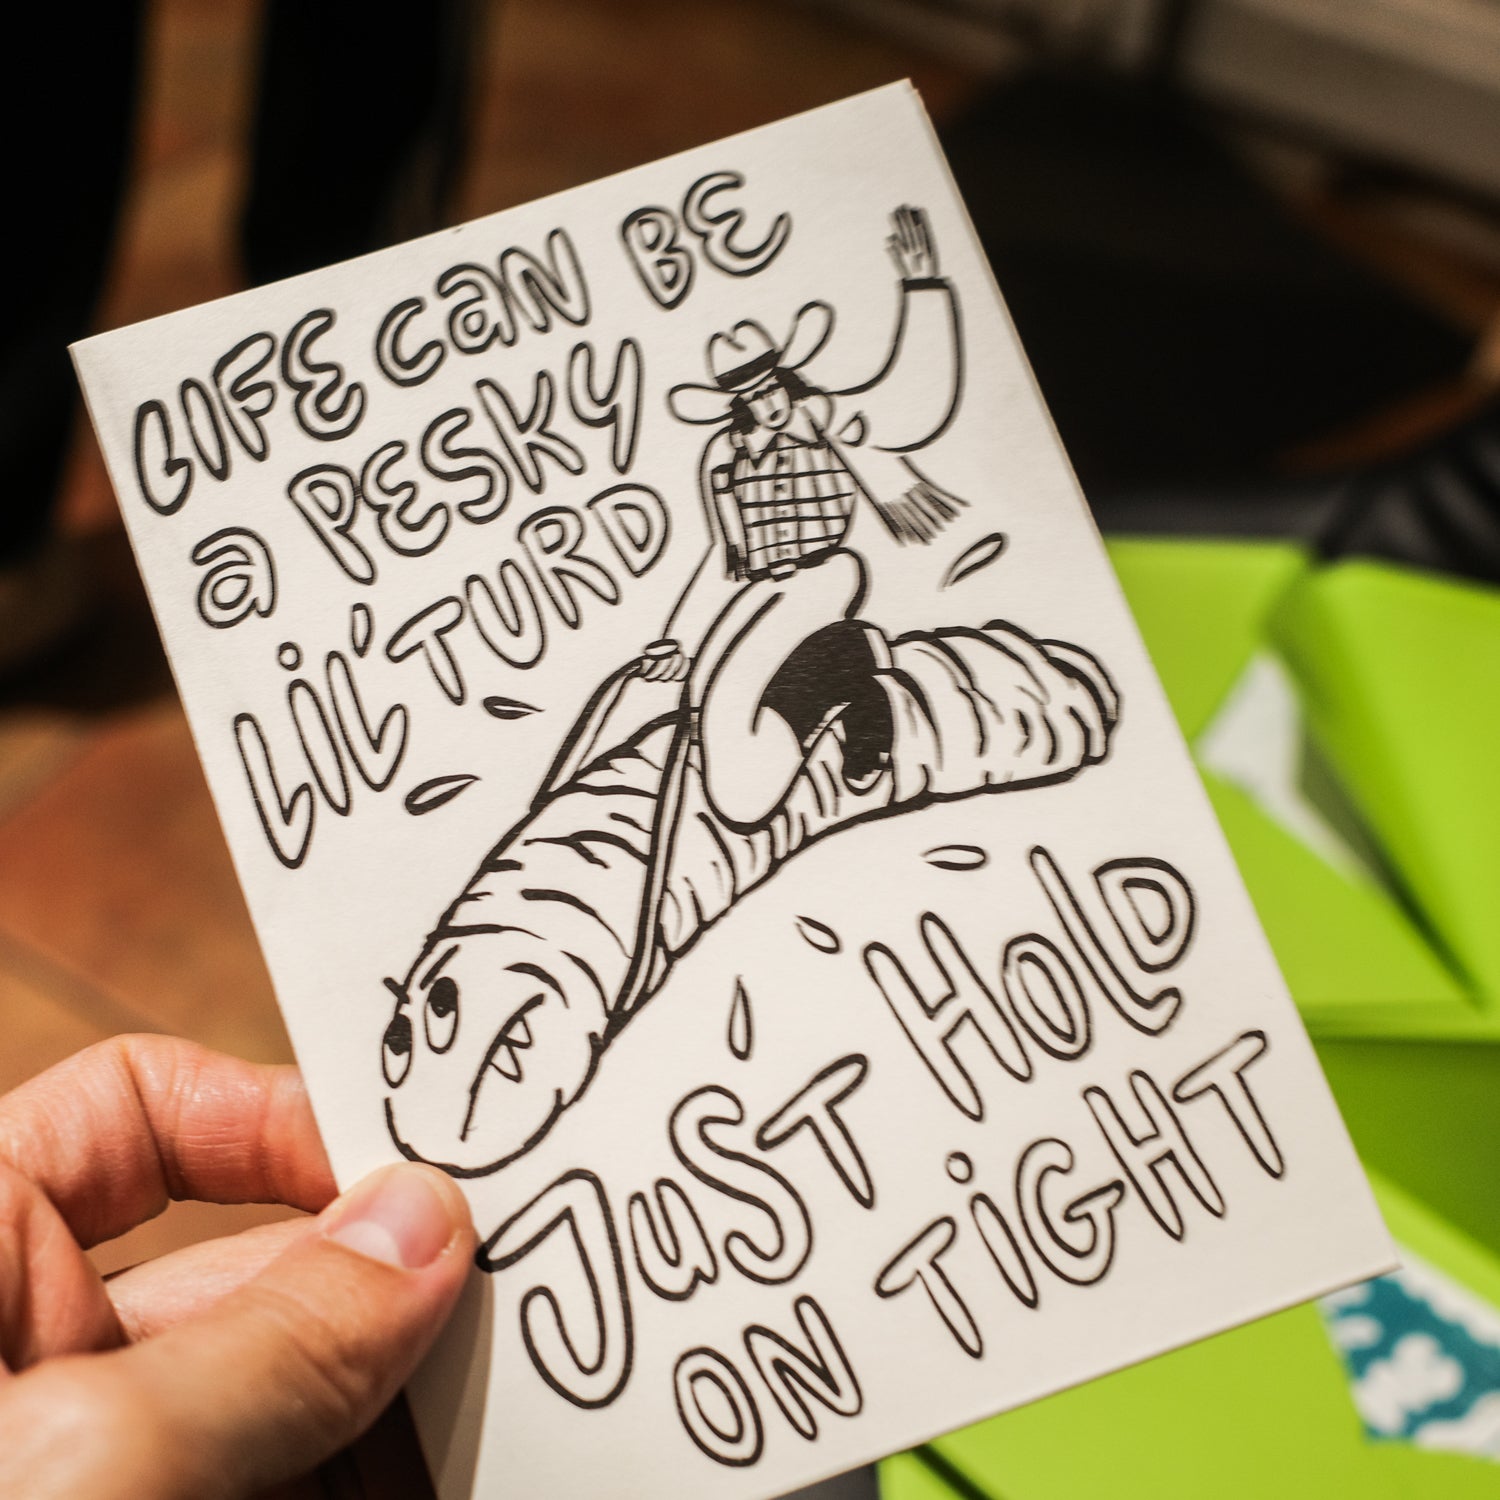 LIFE Can BE
a PESKY
LiL' TURD
JuST HOLD
ON TiGHT